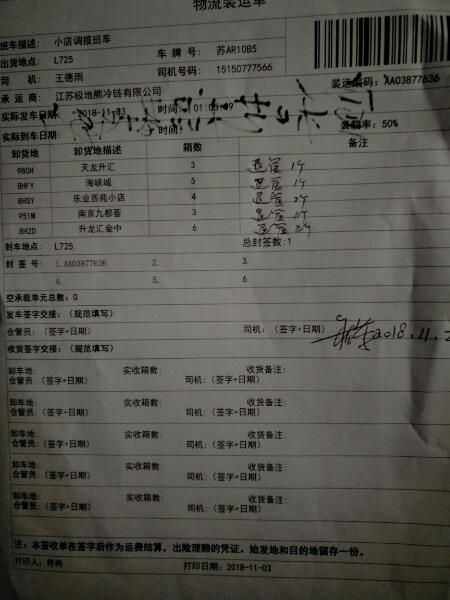 物流装运单
班车描述: 小店调拨班车
出货地点: L725 车 牌 号: 苏AR10B5
司 机: 王德雨 司机号码: 15150777566
承 运 商: 江苏极地熊冷链有限公司 装运编码: AA03877636
实际发车日期: 2018-11-03 时间: 01:05:49 装载率: 50%
实际到车日期: 时间:
卸货地 卸货地描述 箱数 备注
980H 天龙升汇 3 1个
8HFY 海峡城 5 1个
8HSY 乐业西苑小店 4 2个
951M 南京九都荟 3 2个
8H2D 升龙汇金中 6 2个
封车地点: L725 总封签数:1
封 签 号: 1.AA03877636 2. 3.
4. 5. 6.
空承载单元总数: 0
发车签字交接: (规范填写)
仓管员: (签字+日期) 司机: (签字+日期) 2018.11.
收货签字交接: (规范填写)
卸车地: 实收箱数: 收货备注:
仓管员: (签字+日期) 司机: (签字+日期)
卸车地: 实收箱数: 收货备注:
仓管员: (签字+日期) 司机: (签字+日期)
卸车地: 实收箱数: 收货备注:
仓管员: (签字+日期) 司机: (签字+日期)
卸车地: 实收箱数: 收货备注:
仓管员: (签字+日期) 司机: (签字+日期)
卸车地: 实收箱数: 收货备注:
仓管员: (签字+日期) 司机: (签字+日期)
注: 本签收单在签字后作为运费结算, 出险理赔的凭证, 始发地和目的地留存一份。
打印人: 打印日期: 2018-11-03